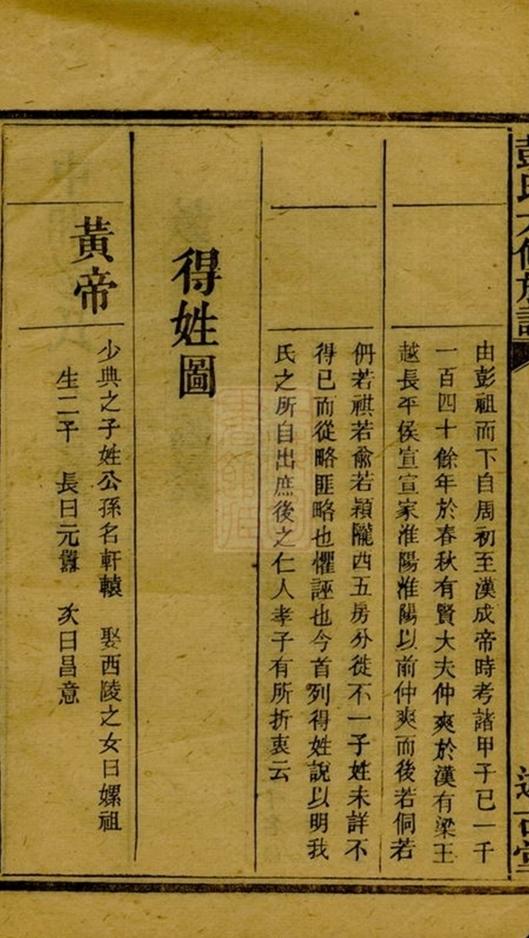 彭氏
由彭祖而下自周初至漢成帝時考諸甲子已一千
一百四十餘年於春秋有賢大夫仲爽於漢有梁王
越長平侯宣宣家淮陽淮陽以前仲爽而後若侗若
侢若祺若兪若穎隴西五房分徙不一子姓未詳不
得已而從略匪略也懼誣也今首列得姓說以明我
氏之所自出庶後之仁人孝子有所折衷云
得姓圖
黃帝
少典之子姓公孫名軒轅 娶西陵之女曰嫘祖
生二子 長曰元囂 次曰昌意